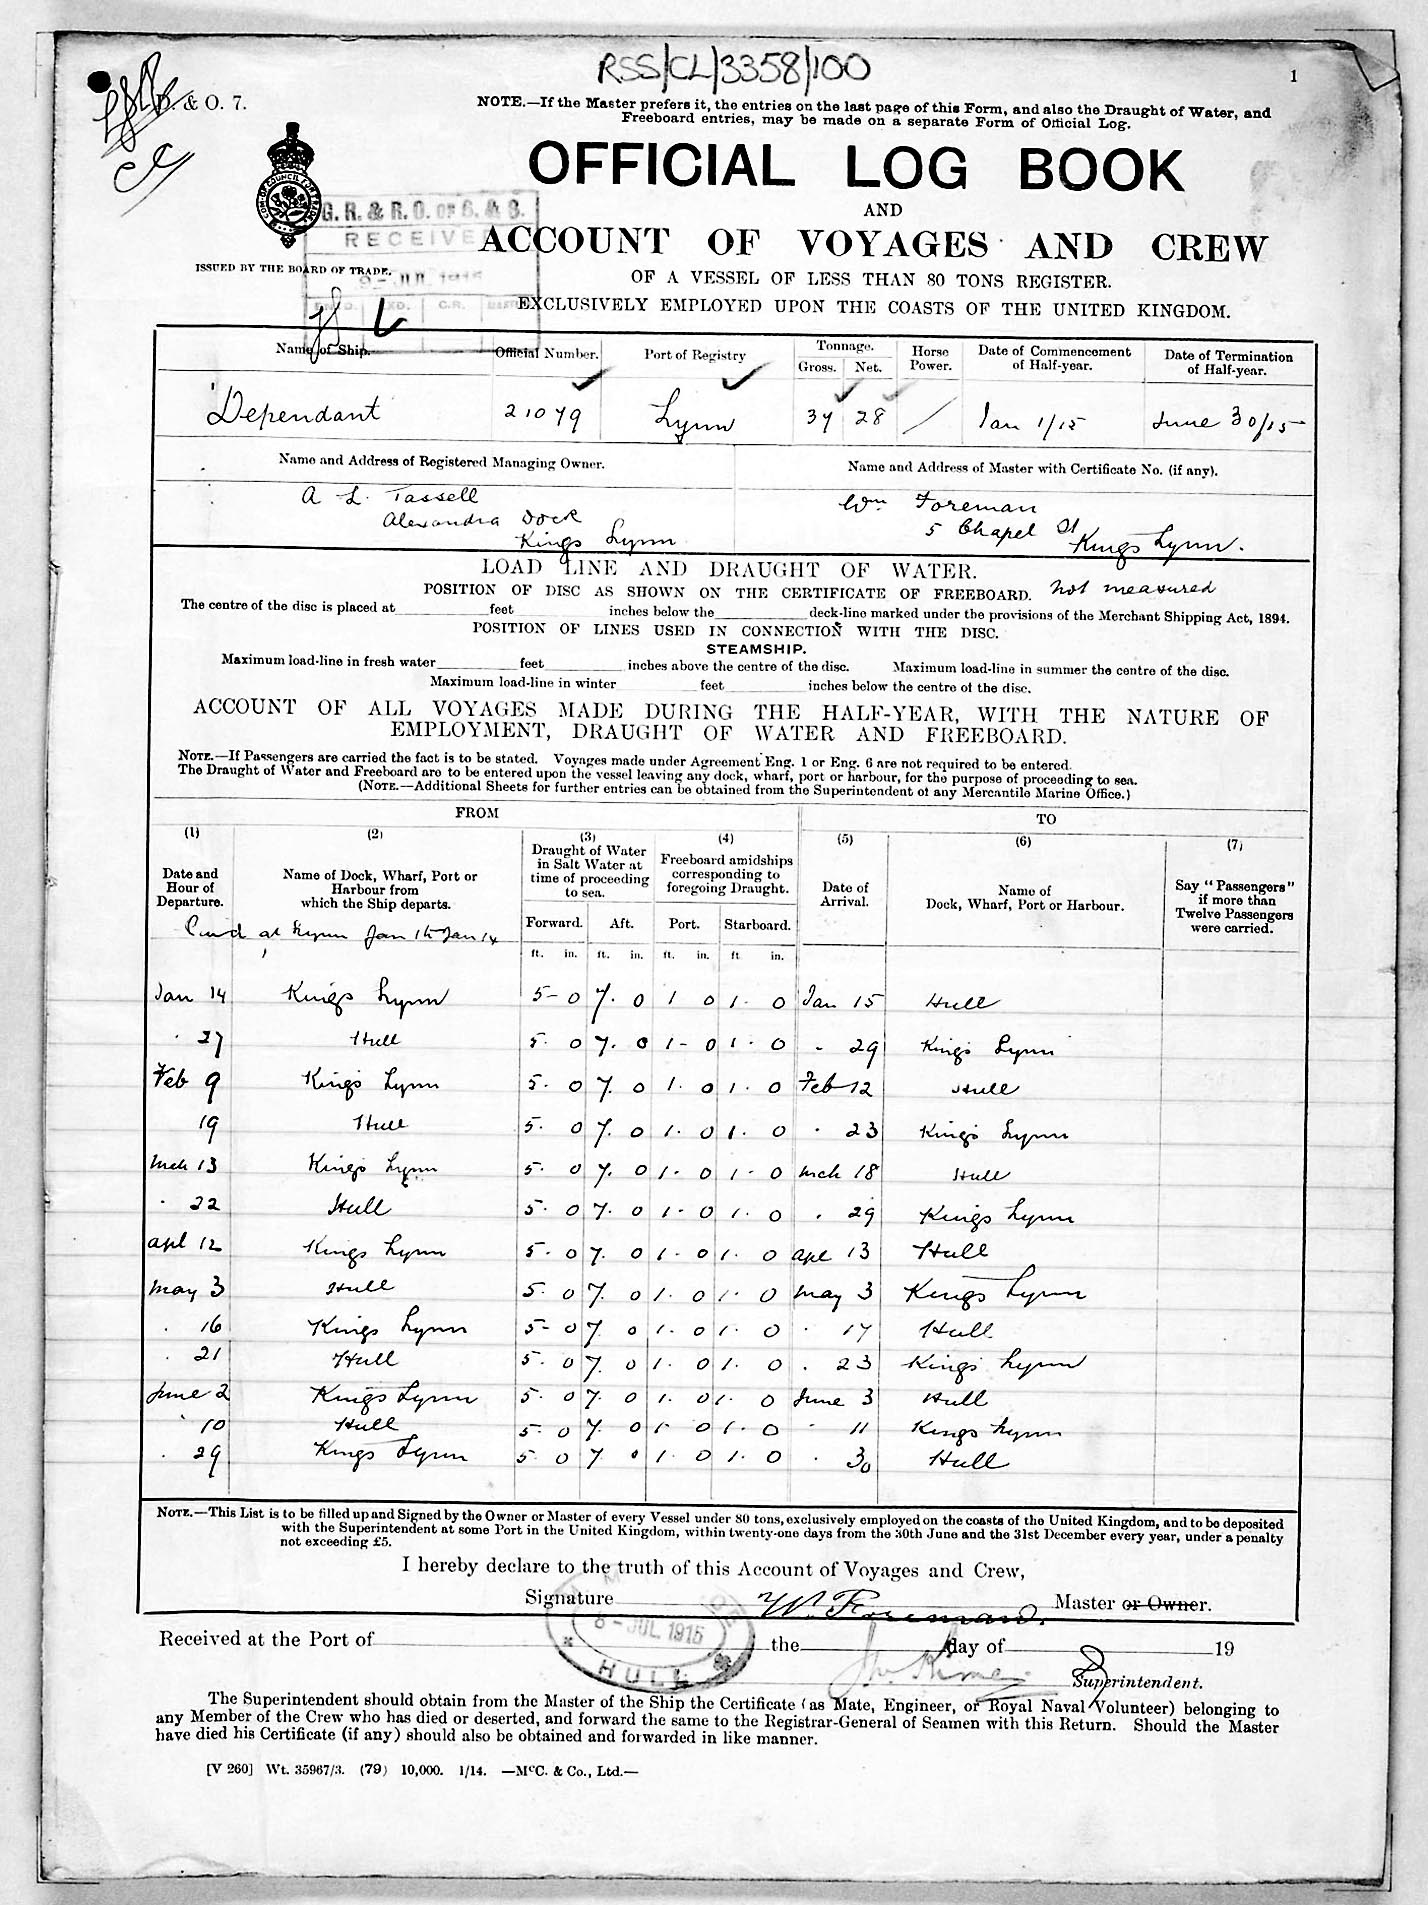 RSS/CL/3358/100
1
D. & O. 7.
NOTE.—If the Master prefers it, the entries on the last page of this Form, and also the Draught of Water, and
Freeboard entries, may be made on a separate Form of Official Log.
OFFICIAL LOG BOOK
AND
ACCOUNT OF VOYAGES AND CREW
OF A VESSEL OF LESS THAN 80 TONS REGISTER.
EXCLUSIVELY EMPLOYED UPON THE COASTS OF THE UNITED KINGDOM.
COM. OF COUNCIL FOR TRADE
G. R. & R. O. OF S. & S.
RECEIVED
9-JUL 1915
ISSUED BY THE BOARD OF TRADE.
C.R.
Name of Ship. Official Number. Port of Registry Tonnage. Gross. Net. Horse Power. Date of Commencement of Half-year. Date of Termination of Half-year.
Dependant 21079 Lynn 37 28 / Jan 1/15 June 30/15
Name and Address of Registered Managing Owner. Name and Address of Master with Certificate No. (if any).
A L. Tassell Wm Foreman
Alexandra Dock 5 Chapel St
Kings Lynn Kings Lynn.
LOAD LINE AND DRAUGHT OF WATER.
POSITION OF DISC AS SHOWN ON THE CERTIFICATE OF FREEBOARD. Not measured
The centre of the disc is placed at feet inches below the deck-line marked under the provisions of the Merchant Shipping Act, 1894.
POSITION OF LINES USED IN CONNECTION WITH THE DISC.
STEAMSHIP.
Maximum load-line in fresh water feet inches above the centre of the disc. Maximum load-line in summer the centre of the disc.
Maximum load-line in winter feet inches below the centre of the disc.
ACCOUNT OF ALL VOYAGES MADE DURING THE HALF-YEAR, WITH THE NATURE OF
EMPLOYMENT, DRAUGHT OF WATER AND FREEBOARD.
NOTE.—If Passengers are carried the fact is to be stated. Voyages made under Agreement Eng. 1 or Eng. 6 are not required to be entered.
The Draught of Water and Freeboard are to be entered upon the vessel leaving any dock, wharf, port or harbour, for the purpose of proceeding to sea.
(NOTE.—Additional Sheets for further entries can be obtained from the Superintendent of any Mercantile Marine Office.)
FROM TO
(1) (2) (3) (4) (5) (6) (7)
Date and Hour of Departure. Name of Dock, Wharf, Port or Harbour from which the Ship departs. Draught of Water in Salt Water at time of proceeding to sea. Freeboard amidships corresponding to foregoing Draught. Date of Arrival. Name of Dock, Wharf, Port or Harbour. Say "Passengers" if more than Twelve Passengers were carried.
Forward. Aft. Port. Starboard.
at Lynn Jan 1 to Jan 14
ft. in. ft. in. ft. in. ft in.
Jan 14 Kings Lynn 5-0 7.0 1 0 1.0 Jan 15 Hull
" 27 Hull 5.0 7.0 1-0 1.0 " 29 Kings Lynn
Feb 9 Kings Lynn 5.0 7.0 1.0 1.0 Feb 12 Hull
19 Hull 5.0 7.0 1.0 1.0 " 23 Kings Lynn
Mch 13 Kings Lynn 5.0 7.0 1.0 1.0 Mch 18 Hull
" 22 Hull 5.0 7.0 1.0 1.0 " 29 Kings Lynn
Apl 12 Kings Lynn 5.0 7.0 1.0 1.0 Apl 13 Hull
May 3 Hull 5.0 7.0 1.0 1.0 May 3 Kings Lynn
" 16 Kings Lynn 5-0 7.0 1.0 1.0 " 17 Hull
" 21 Hull 5.0 7.0 1.0 1.0 " 23 Kings Lynn
June 2 Kings Lynn 5.0 7.0 1.0 1.0 June 3 Hull
" 10 Hull 5.0 7.0 1.0 1.0 " 11 Kings Lynn
" 29 Kings Lynn 5.0 7.0 1.0 1.0 " 30 Hull
NOTE.—This List is to be filled up and Signed by the Owner or Master of every Vessel under 80 tons, exclusively employed on the coasts of the United Kingdom, and to be deposited
with the Superintendent at some Port in the United Kingdom, within twenty-one days from the 30th June and the 31st December every year, under a penalty
not exceeding £5.
I hereby declare to the truth of this Account of Voyages and Crew,
Signature Wm Foreman. Master or Owner.
8-JUL 1915
HULL
Received at the Port of the day of 19
Superintendent.
The Superintendent should obtain from the Master of the Ship the Certificate (as Mate, Engineer, or Royal Naval Volunteer) belonging to
any Member of the Crew who has died or deserted, and forward the same to the Registrar-General of Seamen with this Return. Should the Master
have died his Certificate (if any) should also be obtained and forwarded in like manner.
[V 260] Wt. 35967/3. (79) 10,000. 1/14. —McC. & Co., Ltd.—